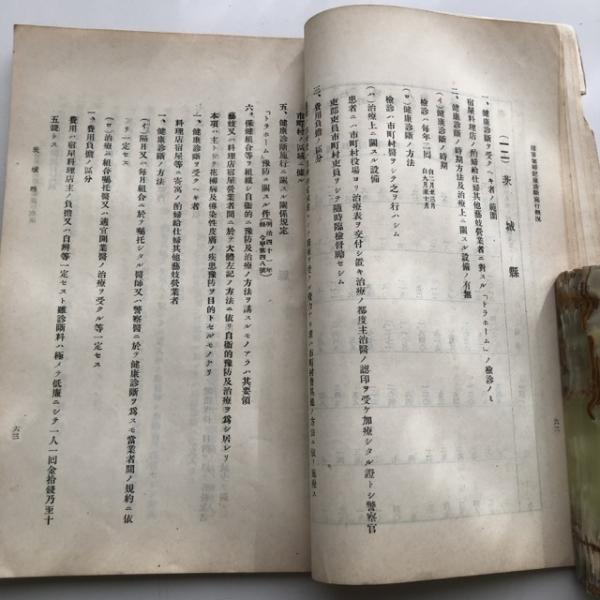 (一二) 茨城縣
一、健康診斷ヲ受クヘキ者ノ範圍
宿屋料理店ノ酌婦給仕婦其他藝妓營業者ニ對スル「トラホーム」ノ檢診ノミ
二、健康診斷ノ時期方法及治療上ニ關スル設備ノ有無
(イ)健康診斷ノ時期
檢診ハ毎年二回
(ロ)健康診斷ノ方法
檢診ハ市町村醫ヲシテ之ヲ行ハシム
(ハ)治療上ニ關スル設備
患者ニハ市町村役場ヨリ治療表ヲ交付シ置キ治療ノ都度主治醫ノ認印ヲ受ケ加療シタル證トシ警察官
吏郡吏員市町村吏員ヲシテ隨時臨檢督勵セシム
三、費用負擔ノ區分
市町村ノ區域ニ據ル
五、健康診斷施行ニ關スル關係規定
「トラホーム」豫防ニ關スル件(明治四十一年縣令第四八號)
六、保健組合等ヲ組織シ自衛的ニ豫防及治療ノ方法ヲ講スルモノアラハ其要領
藝妓又ハ料理店宿屋營業者間ニ於テ大體左記ノ方法ニ依リ自衛的豫防及治療ヲ爲シ居レリ
本項ハ主トシテ花柳病及傳染性皮膚ノ疾患豫防ヲ目的トセルモノナリ
一、健康診斷ヲ受クヘキ者
料理店宿屋等ニ寄寓ノ酌婦給仕婦其他藝妓營業者
一、健康診斷ノ方法
(イ)隔月又ハ毎月組合ニ於テ囑托シタル醫師又ハ警察醫ニ於テ健康診斷ヲ爲スモ當業者間ノ規約ニ依
リ一定セス
(ロ)治療ハ組合囑托醫又ハ適宜開業醫ノ治療ヲ受クル等一定セス
一、費用負擔ノ區分
費用ハ宿屋料理店主ノ負擔又ハ自辨等一定セスト雖診斷料ハ極メテ低廉ニシテ一人一回金拾錢乃至十
五錢トス
六三